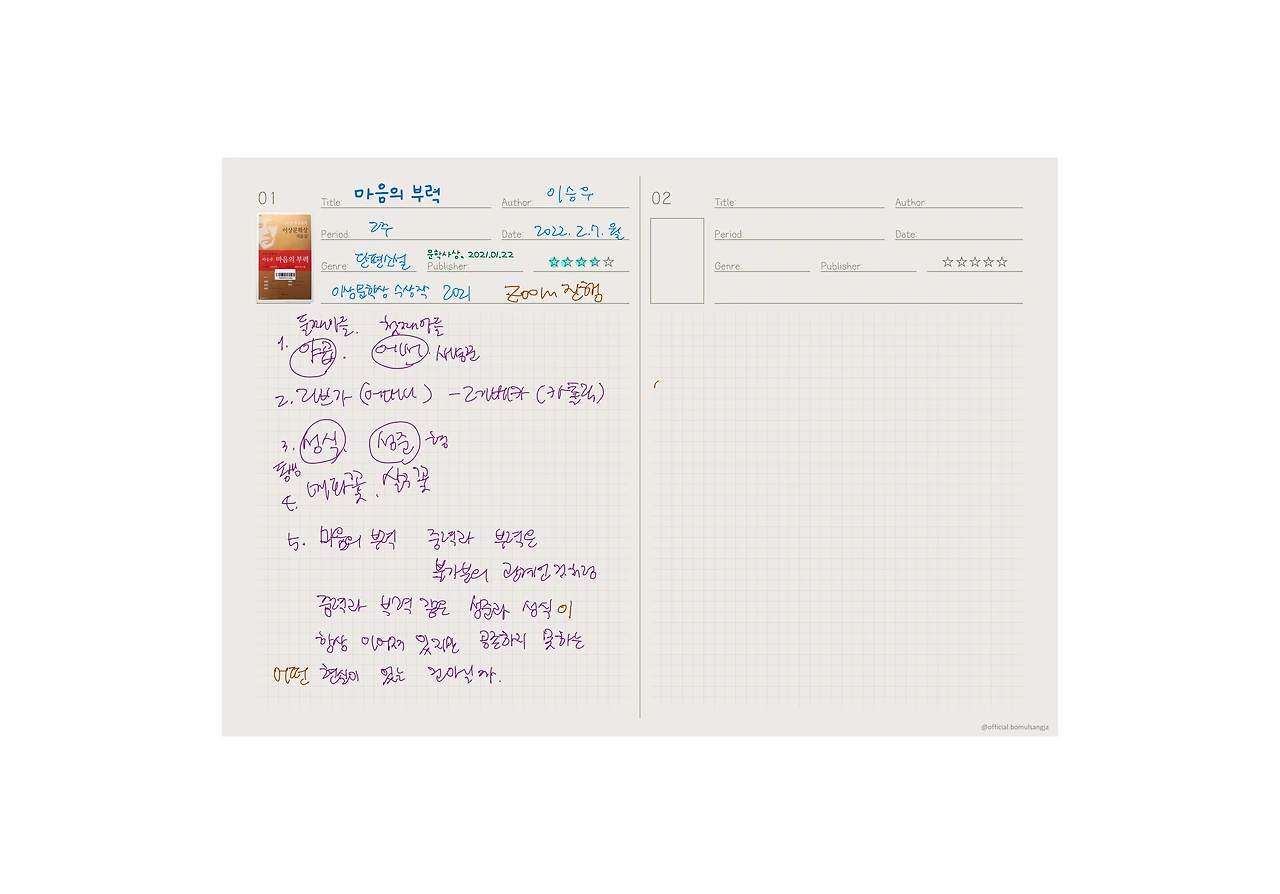 01
Title: 마음의 부력
Author: 이승우
이상문학상
마음의 부력
Period: 2주
Date: 2022. 2. 7. 월
Genre: 단편소설
Publisher: 문학사상. 2021.01.22
이상문학상 수상작 2021 Zoom 진행
둘째아들. 첫째아들
1. 야곱. 에번 세일즈
2. 리브가 (어머니) - 레베카 (카톨릭)
3. 성식. 성준 형
동생
4. 매화꽃. 살구꽃
5. 마음의 부력 중력과 부력은
불가분의 관계인 것처럼
중력과 부력 같은 성준과 성식이
항상 이어져 있지만 공존하지 못하는
어떤 현실이 있는 건 아닐까.
02
Title:
Author:
Period:
Date:
Genre:
Publisher:
@official.bomulsangja